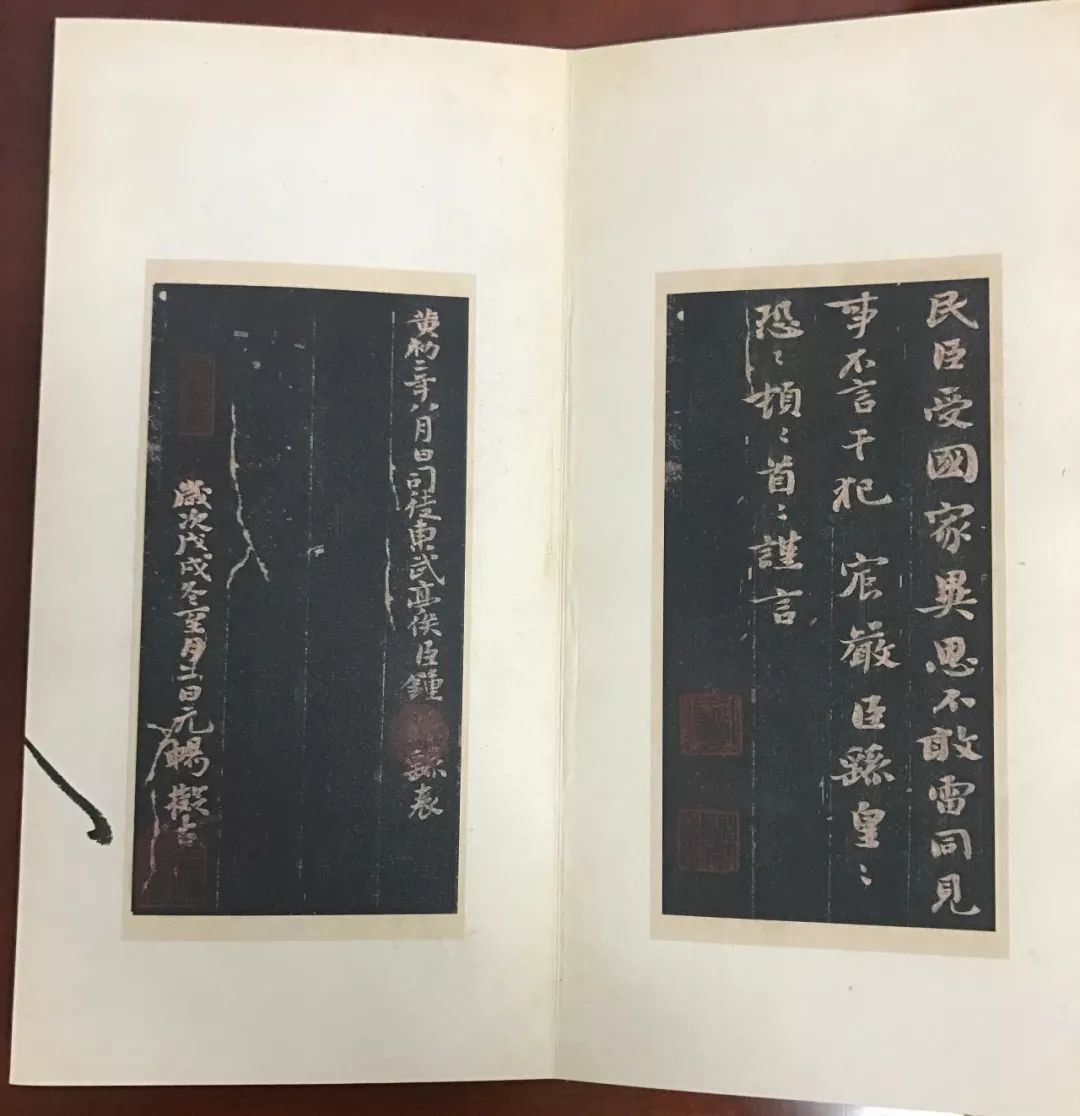 民臣受國家異恩不敢雷同見
事不言干犯 宸嚴臣繇皇〻
恐〻頓〻首〻謹言
黄初二年八月日司徒東武亭侯臣鍾繇表
歲次戊戌冬至月二日元暢擬古